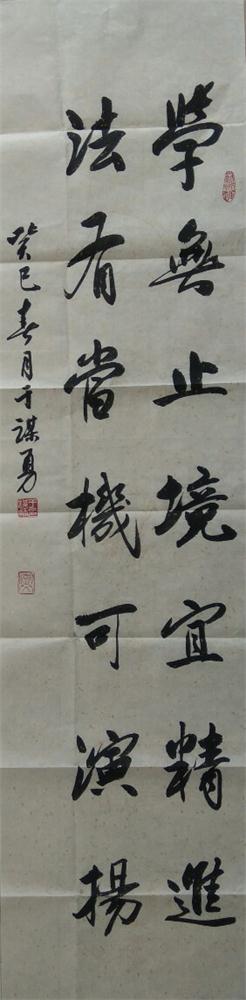 學無止境宜精進
法有當機可演揚
癸巳春月于謀勇